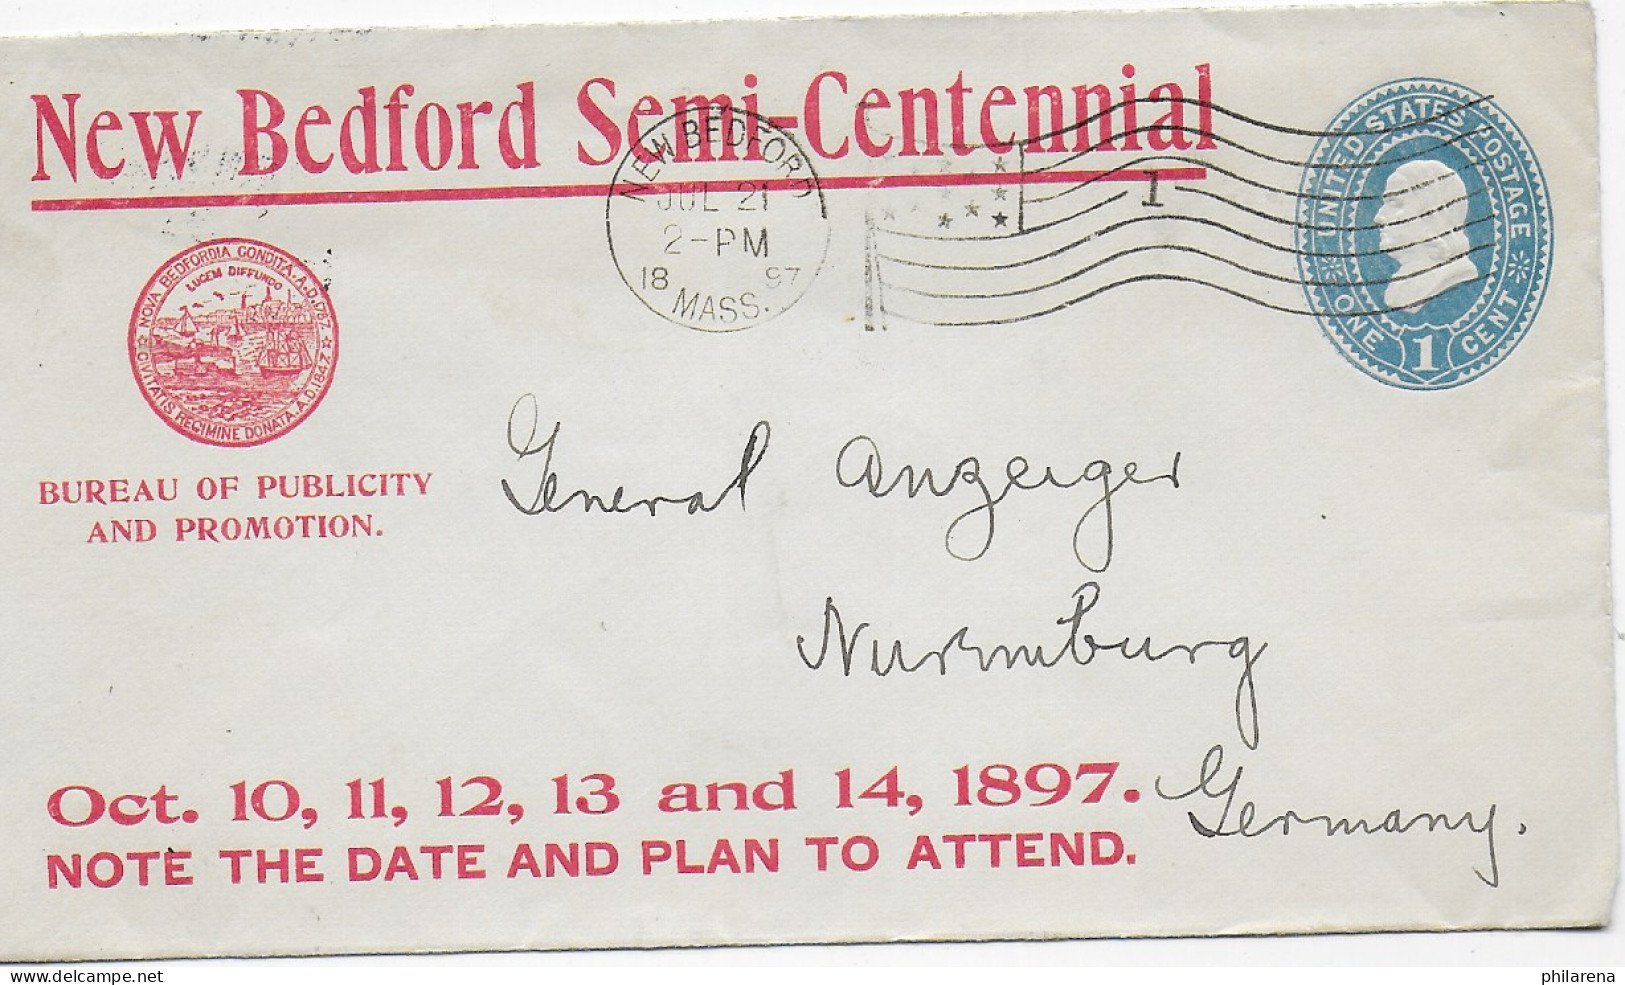 New Bedford Semi-Centennial
NEW BEDFORD
JUL 21
2-PM
18 97
MASS.
1
UNITED STATES POSTAGE
ONE 1 CENT
NOVA BEDFORDIA CONDITA. A.D. 1787
LUCEM DIFFUNDO
CIVITATIS REGIMINE DONATA. A.D. 1847
BUREAU OF PUBLICITY
AND PROMOTION.
General Anzeiger
Nuremburg
Germany.
Oct. 10, 11, 12, 13 and 14, 1897.
NOTE THE DATE AND PLAN TO ATTEND.
www.delcampe.net
philarena